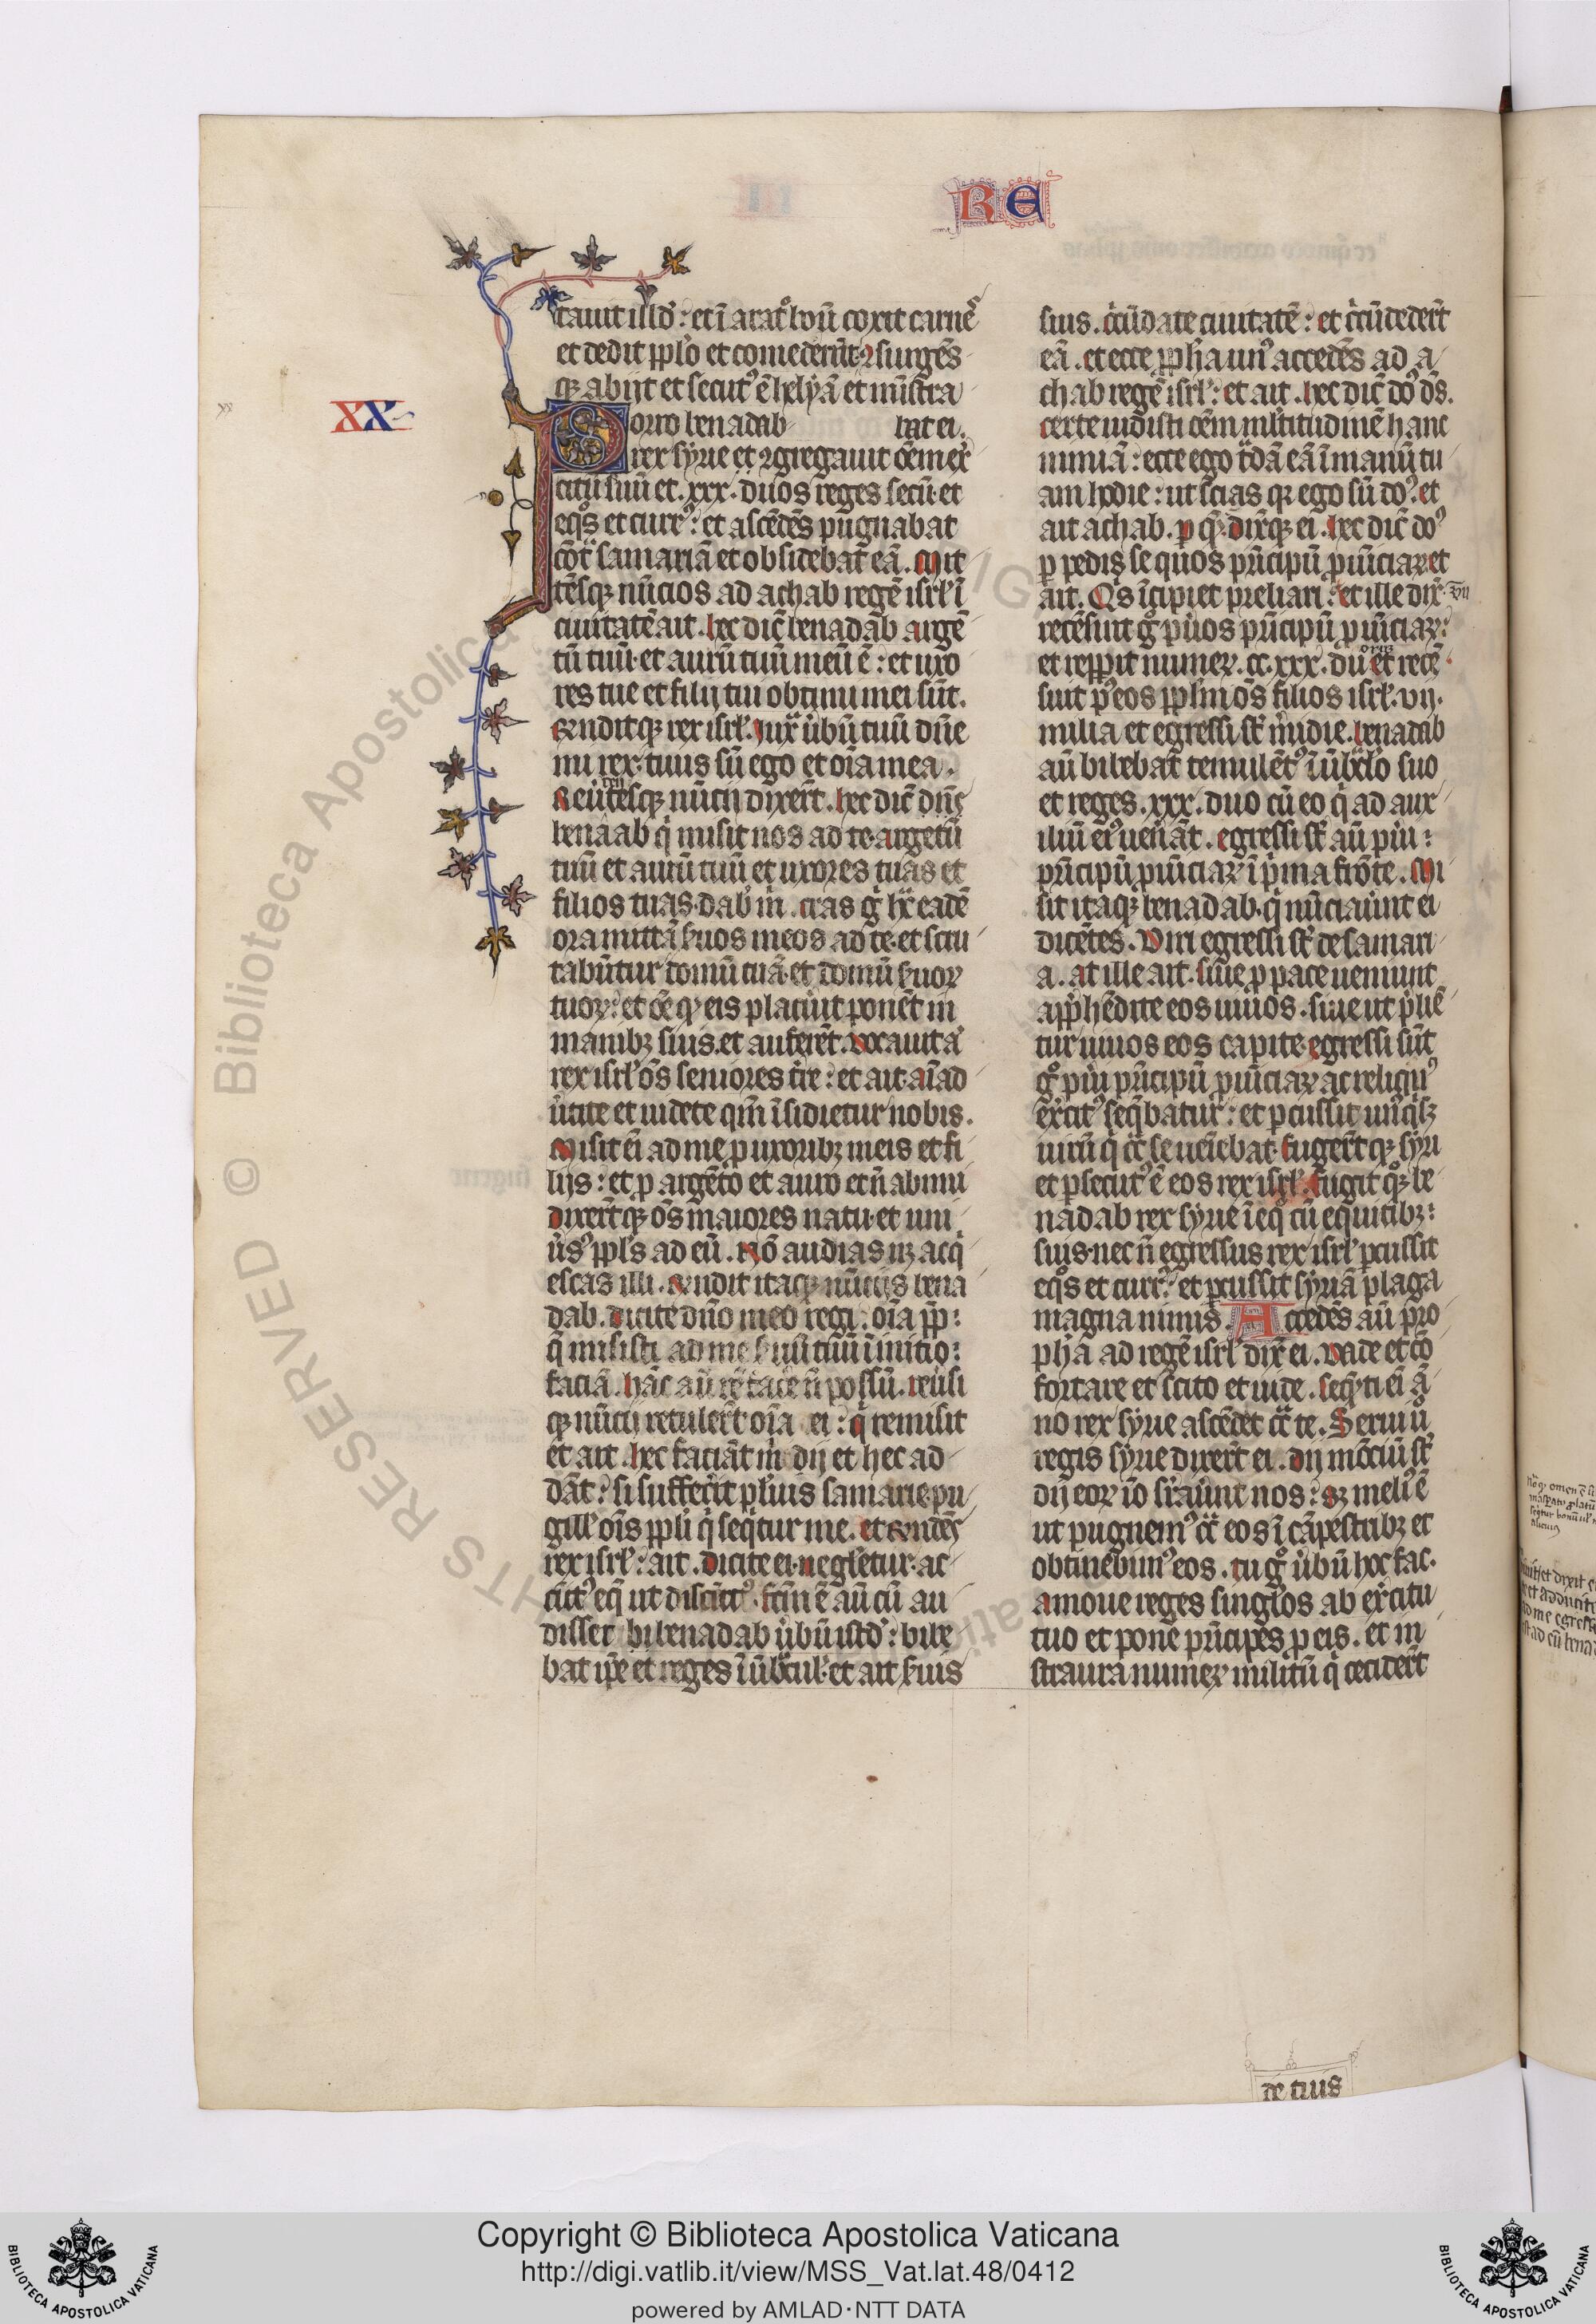 RE
tauit illd̄: et ī aratͦ boū coxit carnē
et dedit pplo et comederūt. ꝯsurgēs
qꝫ abijt et secutꝰ ē helyā et mīstra
XX
Porro benadab bat ei.
rex syrie et ꝯgregauit oēm exͬ
citū suū et .xxx. duos reges secū. et
eqͦs et currꝰ: et ascēdēs pugnabat
cōtͣ samariā et obsidebat eā. Mit
tēsqꝫ nūcios ad achab regē isrl̄ ī
ciuitatē ait. hec dic̄ benadab argē
tū tuū. et aurū tuū meū ē: et uxo
res tue et filij tui obtimi mei sūt.
Rn̄ditqꝫ rex isrl̄. iuxͣ ūbū tuū dn̄e
mi rex. tuus sū ego et oīa mea.
Reūtētesqꝫ nūcij dixer̄t. hec dic̄ dn̄s
benadab qͥ misit nos ad te. argētū
tuū et aurū tuū et uxores tuas et
filios tuos. dab̄ m̄. cras gͦ hͣc eadē
ora mittā s̄uos meos ad te. et scru
tabūtur domū tuā. et domū s̄uoꝝ
tuoꝝ: et oē qͩ eis placūit ponēt in
manibꝫ suis. et auferēt. vocauit aͫ
rex isrl̄ ōs seniores tr̄e: et ait. aīad
ūtite et uidete qm̄ īsidietur nobis.
Misit eī ad me p uxoribꝫ meis et fi
lijs: et p argēto et auro et n̄ abnui
dixer̄tqꝫ ōs maiores natu. et uni
ūsꝰ ppl̄s ad eū. Nō audias nꝫ acqͥ
escas illi. Rn̄dit itaqꝫ nūcijs bena
dab. dicite dn̄o meo regi. oīa pp̄:
q̄ misisti ad me s̄uū tuū ī initio:
faciā. hāc aū rē facē n̄ possū. reūsi
qꝫ nūcij retuler̄t oīa ei: qͥ remisit
et ait. hec faciāt m̄ dij et hec ad
dāt: si suffecīt puluis samarie. pu
gill̄ oīs ppl̄i qͥ seqͥtur me. et rn̄dēs
rex isrl̄: ait. dicite ei. ne gl̄etur. ac
cinctꝰ eq̄ ut discīctꝰ. fctm̄ ē aū cū au
disset bibenadab ūbū istd̄: bibe
bat ip̄e et reges ī ūbͣcul̄. et ait s̄uis
suis. cͥcūdate ciuitatē: et cͥcūdeder̄t
eā. et ecce pph̄a unꝰ accedēs ad a
chab regē isrl̄: et ait. hec dic̄ dō dn̄s.
certe uidisti oēm mltitudinē hanc
nimiā: ecce ego tͣdā eā ī manū tu
am hodie: ut scias qꝫ ego sū dō. et
ait achab. ꝑ qͣ. dixitqꝫ ei. hec dic̄ dō
ꝑ pedis̄ se quos pͥncipū puīciaꝝ et
ait. Qͥs īcipiet preliari. et ille dix̄. tu
recēsuit gͦ pūos pͥncipū puīciaꝝ:
et reppit numeꝝ. cc. xxx. duoruꝫ et recē
suit pꝰ eos pplm̄ ōs filios isrl̄. vij.
milia et egressi st̄ meͥdie. benadab
aū bibebat temulētꝰ ī ūbͣclo suo
et reges. xxx. duo cū eo qͥ ad aux
iliū eiꝰ uen̄ant. egressi st̄ aū pūi:
pͥncipū puīciaꝝ ī pͥma frōte. Mi
sit itaqꝫ benadab. qͥ nūciauūt ei
dicētes. Viri egressi st̄ de samari
a. at ille ait. siue p pace ueniunt
app̄hēdite eos uiuos. siue ut plīē
tur uiuos eos capite. egressi sūt
gͦ pūi pͥncipū puīciaꝝ ac reliquꝰ
exͬcitꝰ seq̄batur: et pcussit unꝰqͥsꝫ
uirū qͥ cͣ se ueīebat. fugeīt qꝫ syri
et psecutꝰ ē eos rex isrl̄. fugit qͦꝫ be
nadab rex syrie ī eqͦ cū equitibꝫ:
suis. nec n̄ egressus rex isrl̄ pcussit
eqͦs et currꝰ. et pcussit syriā plaga
magna nimis. Accedēs aū pro
ph̄a ad regē isrl̄ dix̄ ei. vade et cō
fortare et scito et uide. seqͣ.ti eī ā
no rex syrie ascēdet cͣ te. Serui uͦ
regis syrie dixer̄t ei. dij mōciū st̄
dij eoꝝ iō sr̄auūt nos: sꝫ meliꝰ ē
ut pugnemꝰ cͣ eos ī cāpestribꝫ et
obtinebimꝰ eos. tu gͦ ūbū hoc fac.
amoue reges singlōs ab exͬcitu
tuo et pone pͥncipes p eis. et in
staura numeꝝ militū qͥ cecider̄t
de tuis
Copyright © Biblioteca Apostolica Vaticana
http://digi.vatlib.it/view/MSS_Vat.lat.48/0412
powered by AMLAD·NTT DATA
BIBLIOTECA APOSTOLICA VATICANA
BIBLIOTECA APOSTOLICA VATICANA